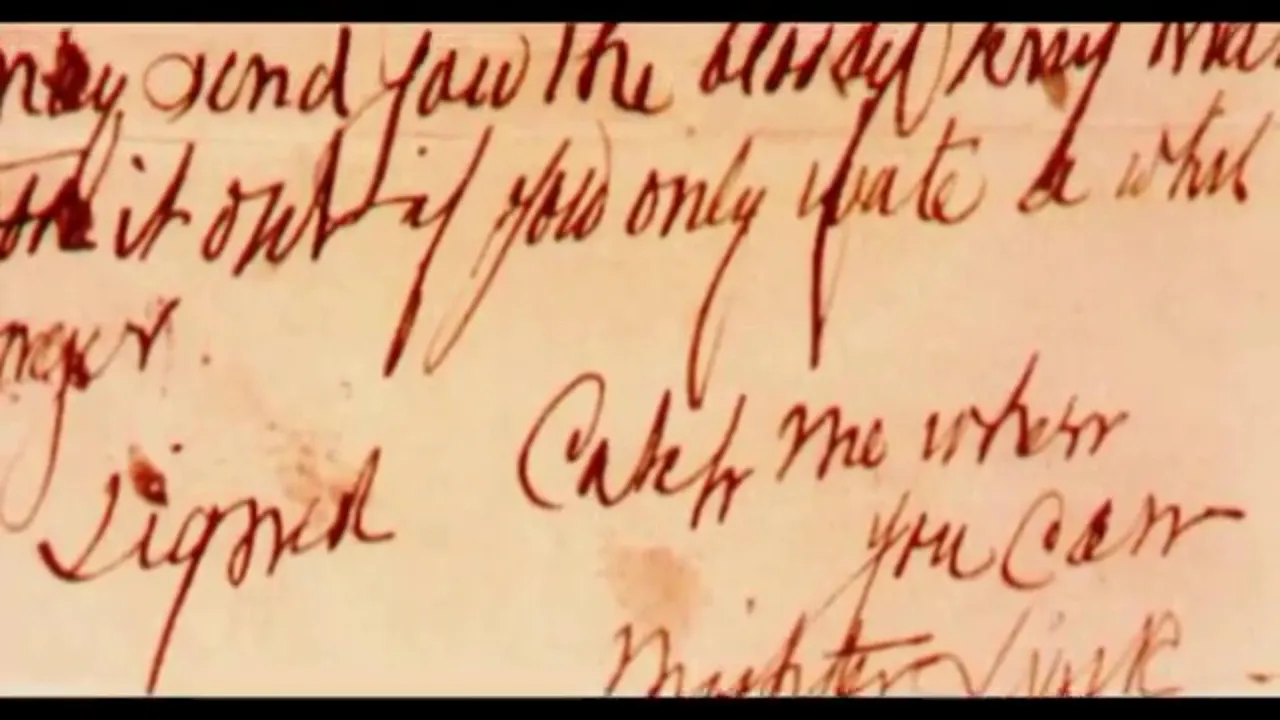 may send you the bloody knif
it out if you only wate a whil
signed
Catch me when
you can
Mishter Lusk